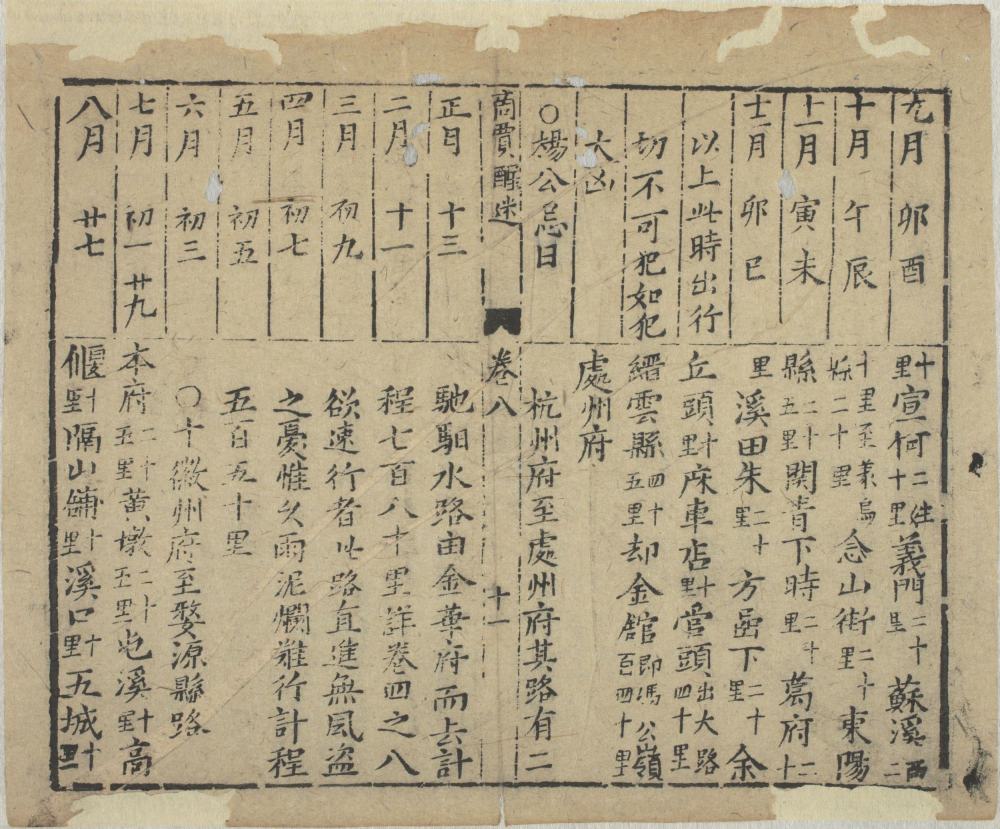 九月 卯酉
十月 午辰
十一月 寅未
十二月 卯巳
以上此时出行
切不可犯如犯
大凶
○楊公忌日
商賈醒迷
正月 十三
二月 十一
三月 初九
四月 初七
五月 初五
六月 初三
七月 初一 廿九
八月 廿七
十里宣何二十里義門三十里蘇溪西二
十里至義烏縣二十里念山街二十里東陽
縣二十五里関青下時二十里葛府十二
里溪田朱二十里方嵒下二十里余
丘頭十里庥車店十里官頭出大路四十里
縉雲縣四十五里却金館即馮公嶺百四十里
處州府
杭州府至處州府其路有二
卷八 十一
馳馹水路由金華府而去計
程七百八十里詳卷四之八
欲速行者此路直進無風盜
之憂惟久雨泥爛难行計程
五百五十里
○十徽州府至婺源縣路
本府二十五里黄墩二十五里屯溪十里高
偃十里隔山鋪十里溪口十里五城十